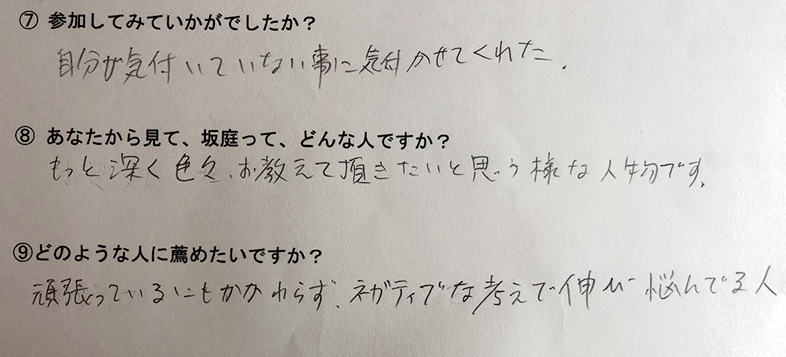 ⑦ 参加してみていかがでしたか？
自分が気付いていない事に気付かせてくれた.
⑧ あなたから見て、坂庭って、どんな人ですか？
もっと深く色々、お教えて頂きたいと思う様な人物です.
⑨どのような人に薦めたいですか？
頑張っているにもかかわらず、ネガティブな考えで伸び悩んでる人